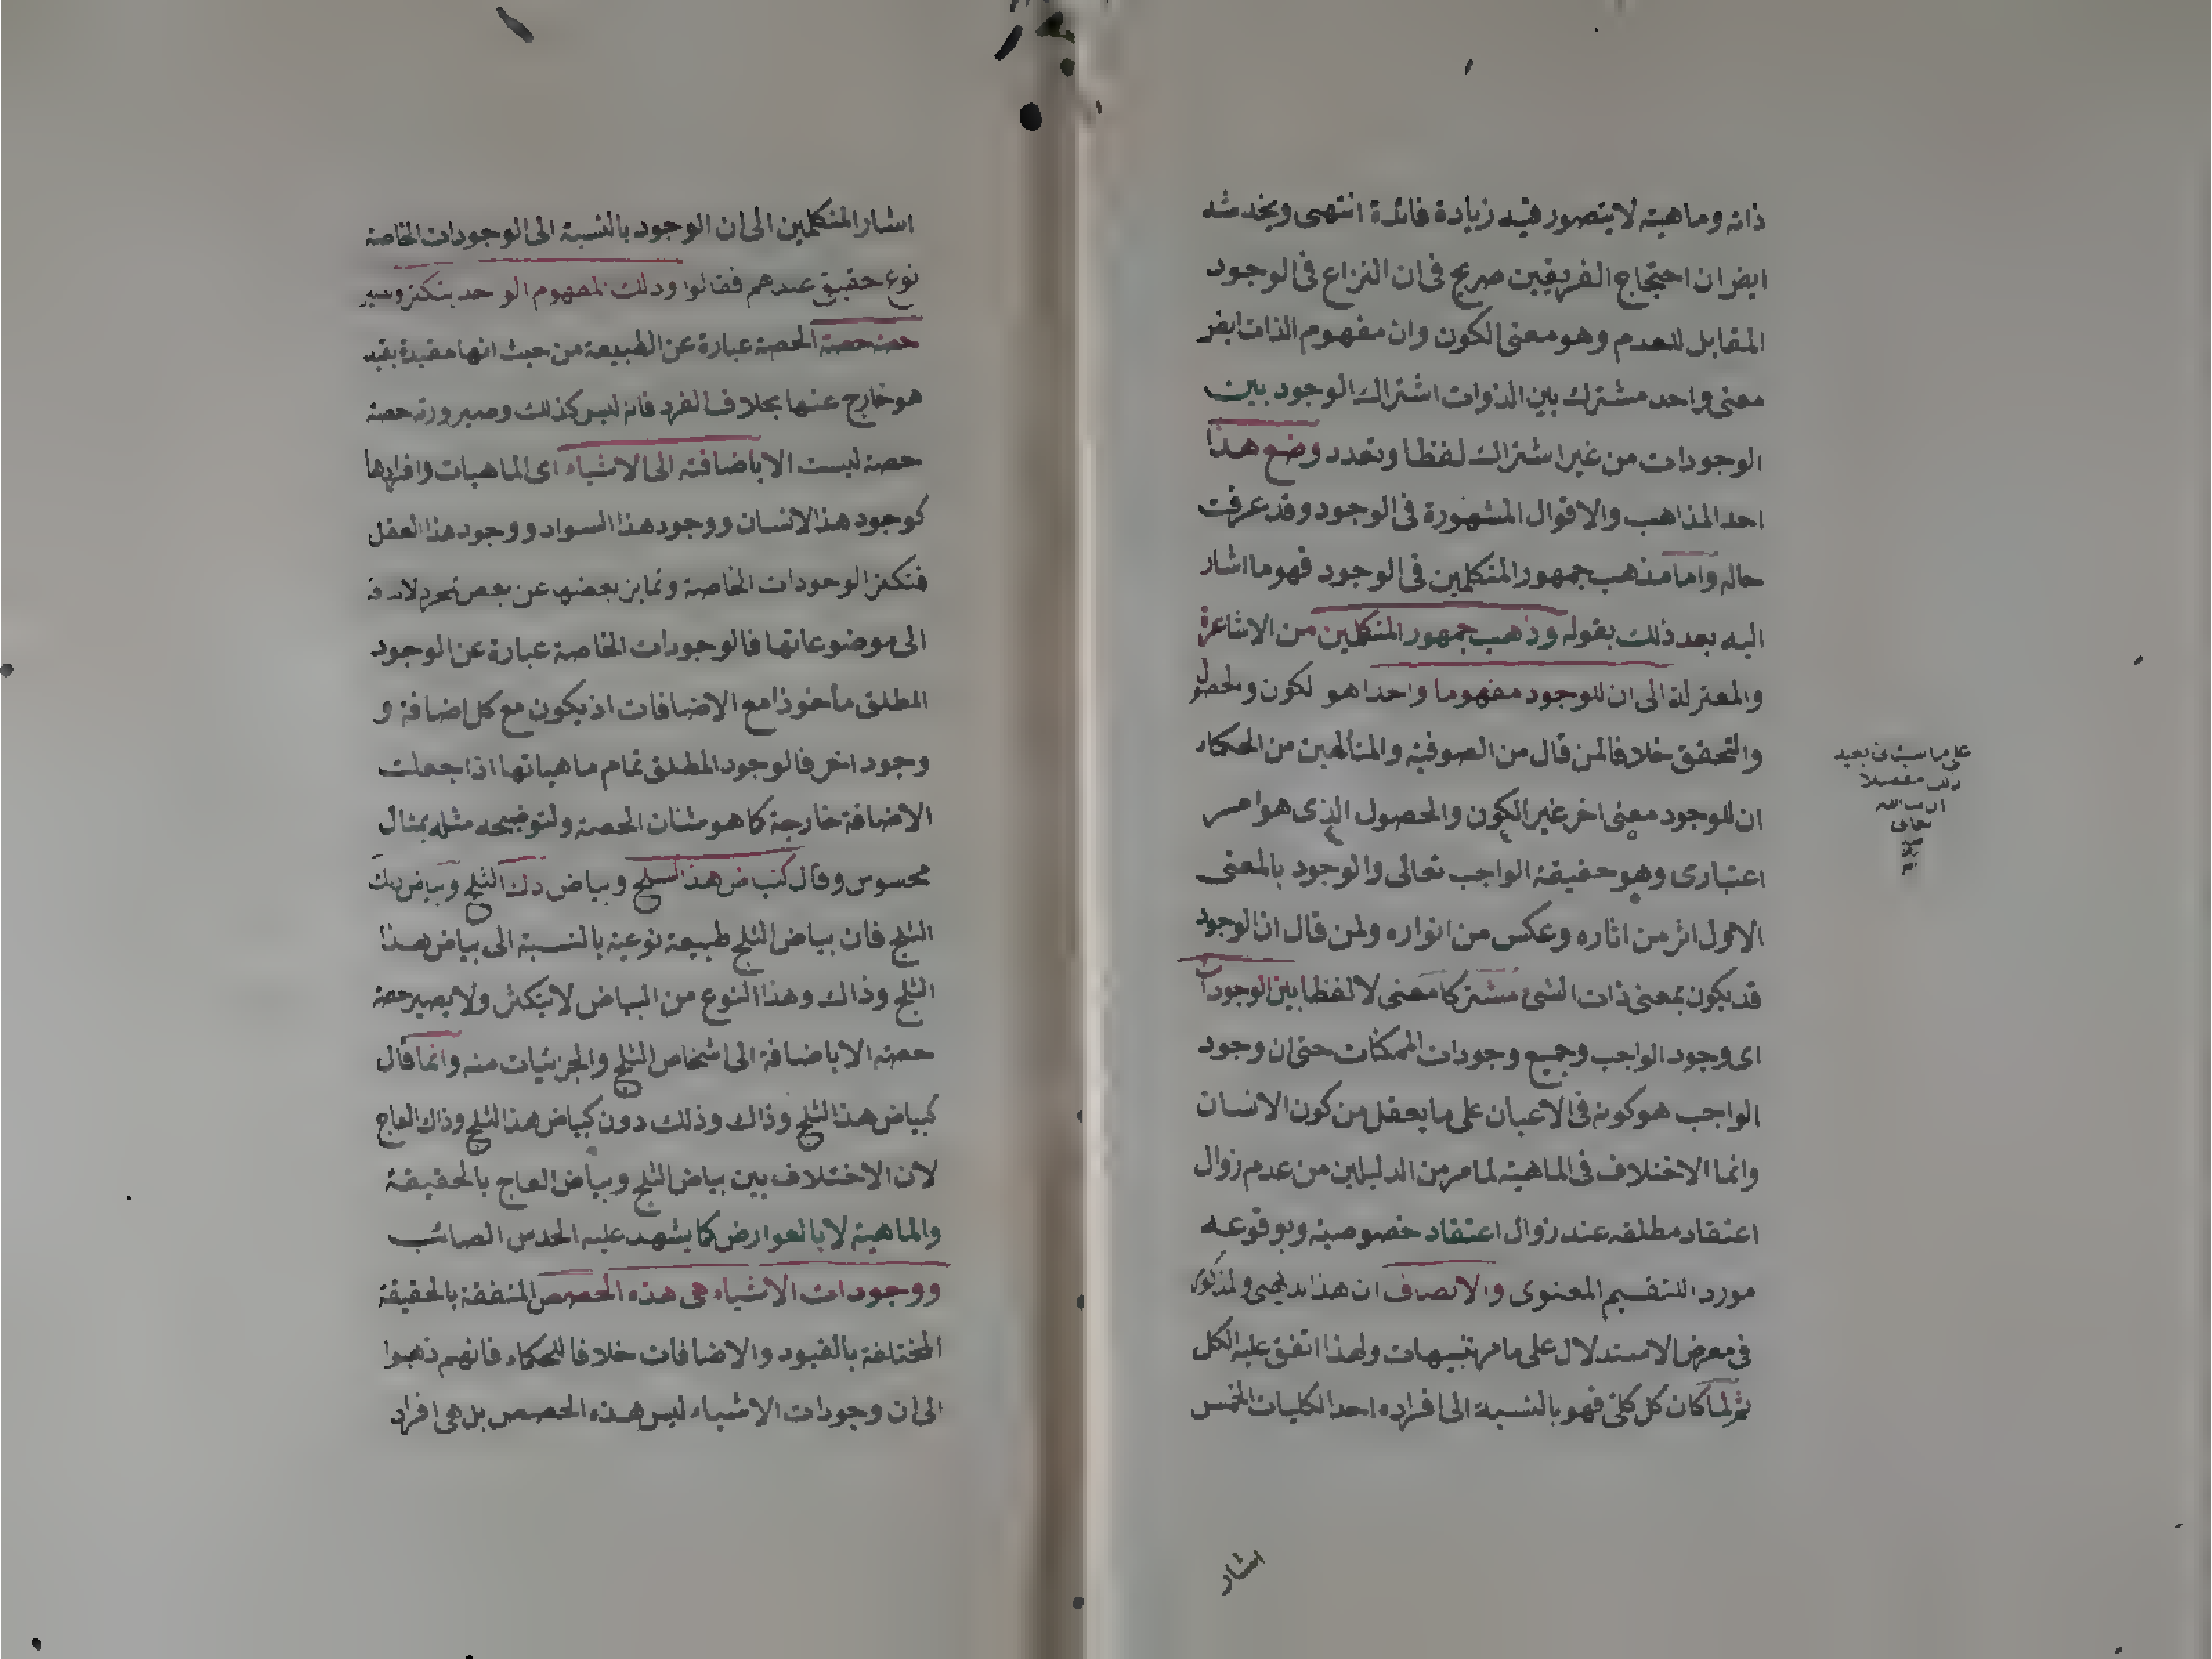 ذاته وماهيته لا يتصور فيه زيادة فائدة انتهى ويخدشه
ايض ان احتجاج الفريقين صريح فى ان النزاع فى الوجود
المقابل للعدم وهو معنى الكون وان مفهوم الذات ايض
معنى واحد مشترك بين الذوات اشتراك الوجود بين
الوجودات من غير اشتراك لفظا وتعدد وضع هذا
احد المذاهب والاقوال المشهورة فى الوجود وقد عرفت
حاله واما مذهب جمهور المتكلمين فى الوجود فهو ما اشار
اليه بعد ذلك بقوله وذهب جمهور المتكلمين من الاشاعرة
والمعتزلة الى ان للوجود مفهوما واحدا هو لكون والحصول
والتحقق خلافا لمن قال من الصوفية والمتألهين من الحكماء
ان للوجود معنى اخر غير الكون والحصول الذى هو امر
اعتبارى وهو حقيقة الواجب تعالى والوجود بالمعنى
الاول اثر من اثاره وعكس من انواره ولمن قال ان الوجود
قد يكون بمعنى ذات الشئ مشتركا معنى لا لفظا بين الوجودات
اى وجود الواجب وجميع وجودات الممكنات حتى ان وجود
الواجب هو كونه فى الاعيان على ما يعقل من كون الانسان
وانما الاختلاف فى الماهية لما مر من الدليلين من عدم زوال
اعتقاد مطلقه عند زوال اعتقاد خصوصيته وبوقوعه
مورد التقسيم المعنوى والانصاف ان هذا بديهى والمذكور
فى معرض الاستدلال على ما مر تنبيهات ولهذا اتفق عليه الكل
ثم لما كان كل كلى فهو بالنسبة الى افراده احد الكليات الخمس
اشار
على ما سيأتى بعيد
ذلك مفصلا
ان شاء الله
تعالى
اشار المتكلمين الى ان الوجود بالنسبة الى الوجودات الخاصة
نوع حقيقى عندهم فقالوا وذلك المفهوم الواحد يتكثر ويصير
حصة حصة الحصة عبارة عن الطبيعة من حيث انها مقيدة بقيد
هو خارج عنها بخلاف الفرد فانه ليس كذلك وصيرورته حصة
حصة ليست الا باضافته الى الاشياء اى الماهيات وافرادها
كوجود هذا الانسان ووجود هذا السواد ووجود هذا العقل
فتكثر الوجودات الخاصة وتمايز بعضها عن بعض بمجرد الاضافة
الى موضوعاتها فالوجودات الخاصة عبارة عن الوجود
المطلق مأخوذا مع الاضافات اذ يكون مع كل اضافة و
وجود اخر فالوجود المطلق تمام ماهياتها اذا جعلت
الاضافة خارجة كما هو شان الحصة ولتوضيحه مثله بمثال
محسوس وقال كبياض هذا الثلج وبياض ذك الثلج وبياض ذلك
الثلج فان بياض الثلج طبيعة نوعية بالنسبة الى بياض هذا
الثلج وذاك وهذا النوع من البياض لا يتكثر ولا يصير حصة
حصة الا باضافة الى اشخاص الثلج والجزئيات منه وانما قال
كبياض هذا الثلج وذاك وذلك دون كبياض هذا الثلج وذاك العاج
لان الاختلاف بين بياض الثلج وبياض العاج بالحقيقة
والماهية لا بالعوارض كما يشهد عليه الحدس الصائب
ووجودات الاشياء هى هذه الحصص المتفقة بالحقيقة
المختلفة بالقيود والاضافات خلافا للحكماء فانهم ذهبوا
الى ان وجودات الاشياء ليس هذه الحصص بل هى افراد